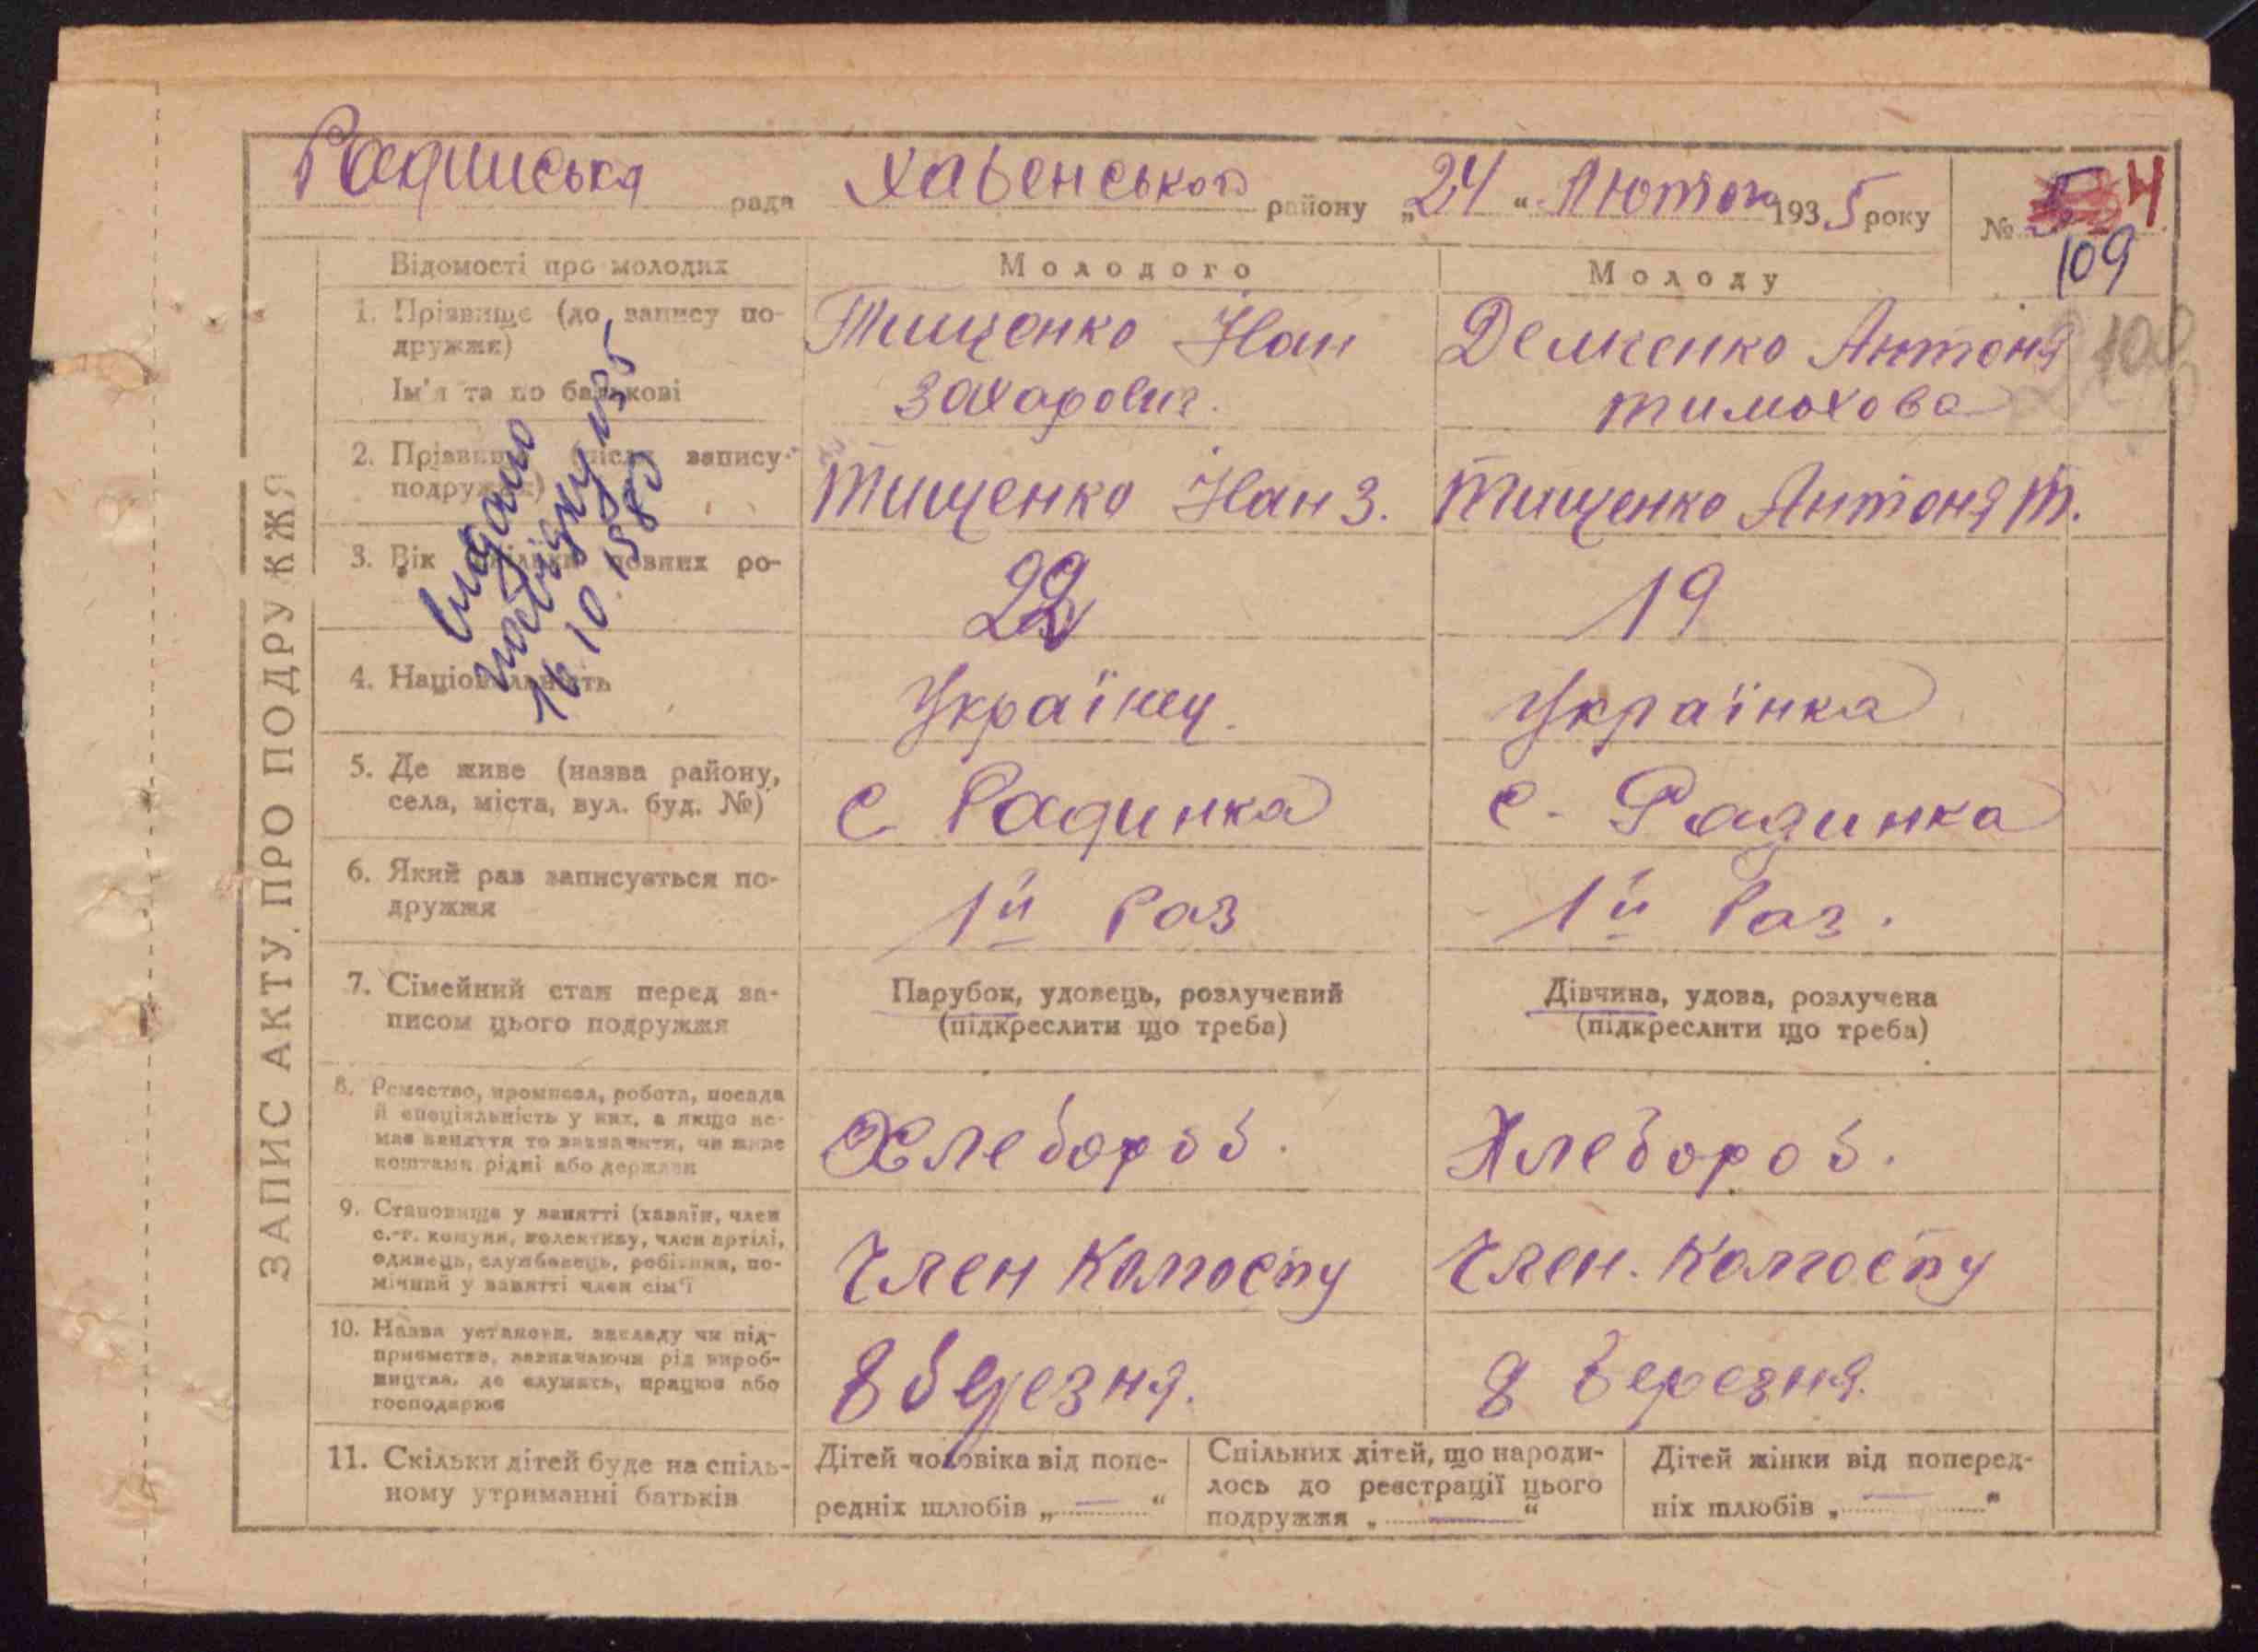 Радинська рада Хабенського району „24“ Лютого 1935 року № 4
109
Відомості про молодих Молодого Молоду
109
1. Прізвище (до запису по-
дружжя)
Ім'я та по батькові
Тищенко Йван
Захарович.
Демченко Антоня
Тимохова
2. Прізвище (після запису
подружжя)
Тищенко Йван З.
Тищенко Антоня Т.
3. Вік скільки повних ро-
22
19
4. Національність
Українец.
Українка
5. Де живе (назва району,
села, міста, вул. буд. №)
с. Радинка
с. Радинка
6. Який раз записується по-
дружжя
1й Раз
1й Раз.
7. Сімейний стан перед за-
писом цього подружжя
Парубок, удовець, розлучений
(підкреслити що треба)
Дівчина, удова, розлучена
(підкреслити що треба)
8. Ремество, промисел, робота, посада
й спеціяльність у них, а якщо не-
має заняття то зазначити, чи живе
коштами рідні або держави
Хлебороб.
Хлебороб.
9. Становище у занятті (хазяїн, член
с.-г. комуни, колективу, член артілі,
одинець, службовець, робітник, по-
мічний у занятті член сім'ї
Член колгоспу
Член. колгоспу
10. Назва установи, закладу чи під-
приємства, зазначаючи рід вироб-
ництва, де служить, працює або
господарює
8 березня.
8 березня.
11. Скільки дітей буде на спіль-
ному утриманні батьків
Дітей чоловіка від попе-
редніх шлюбів „ — “
Спільних дітей, що народи-
лось до реєстрації цього
подружжя „ — “
Дітей жінки від поперед-
ніх шлюбів „ — “
ЗАПИС АКТУ ПРО ПОДРУЖЖЯ
видано
довідку
16.10.